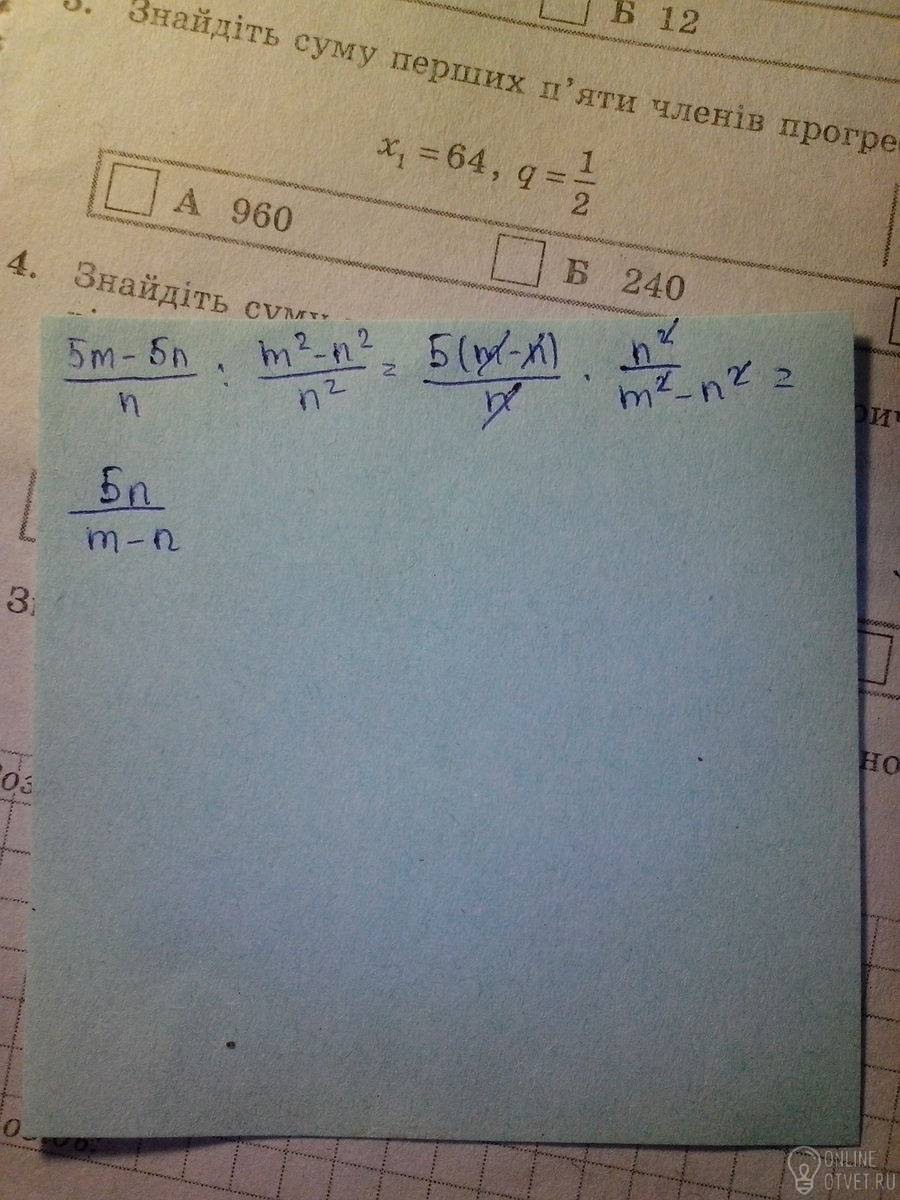 Б 12
3. Знайдіть суму перших п'яти членів прогре
x₁ = 64, q = 1/2
А 960
Б 240
4. Знайдіть суму
(5m - 5n)/n : (m² - n²)/n² = 5(m - n)/n · n²/(m² - n²) =
5n/(m - n)
ONLINE
OTVET.RU